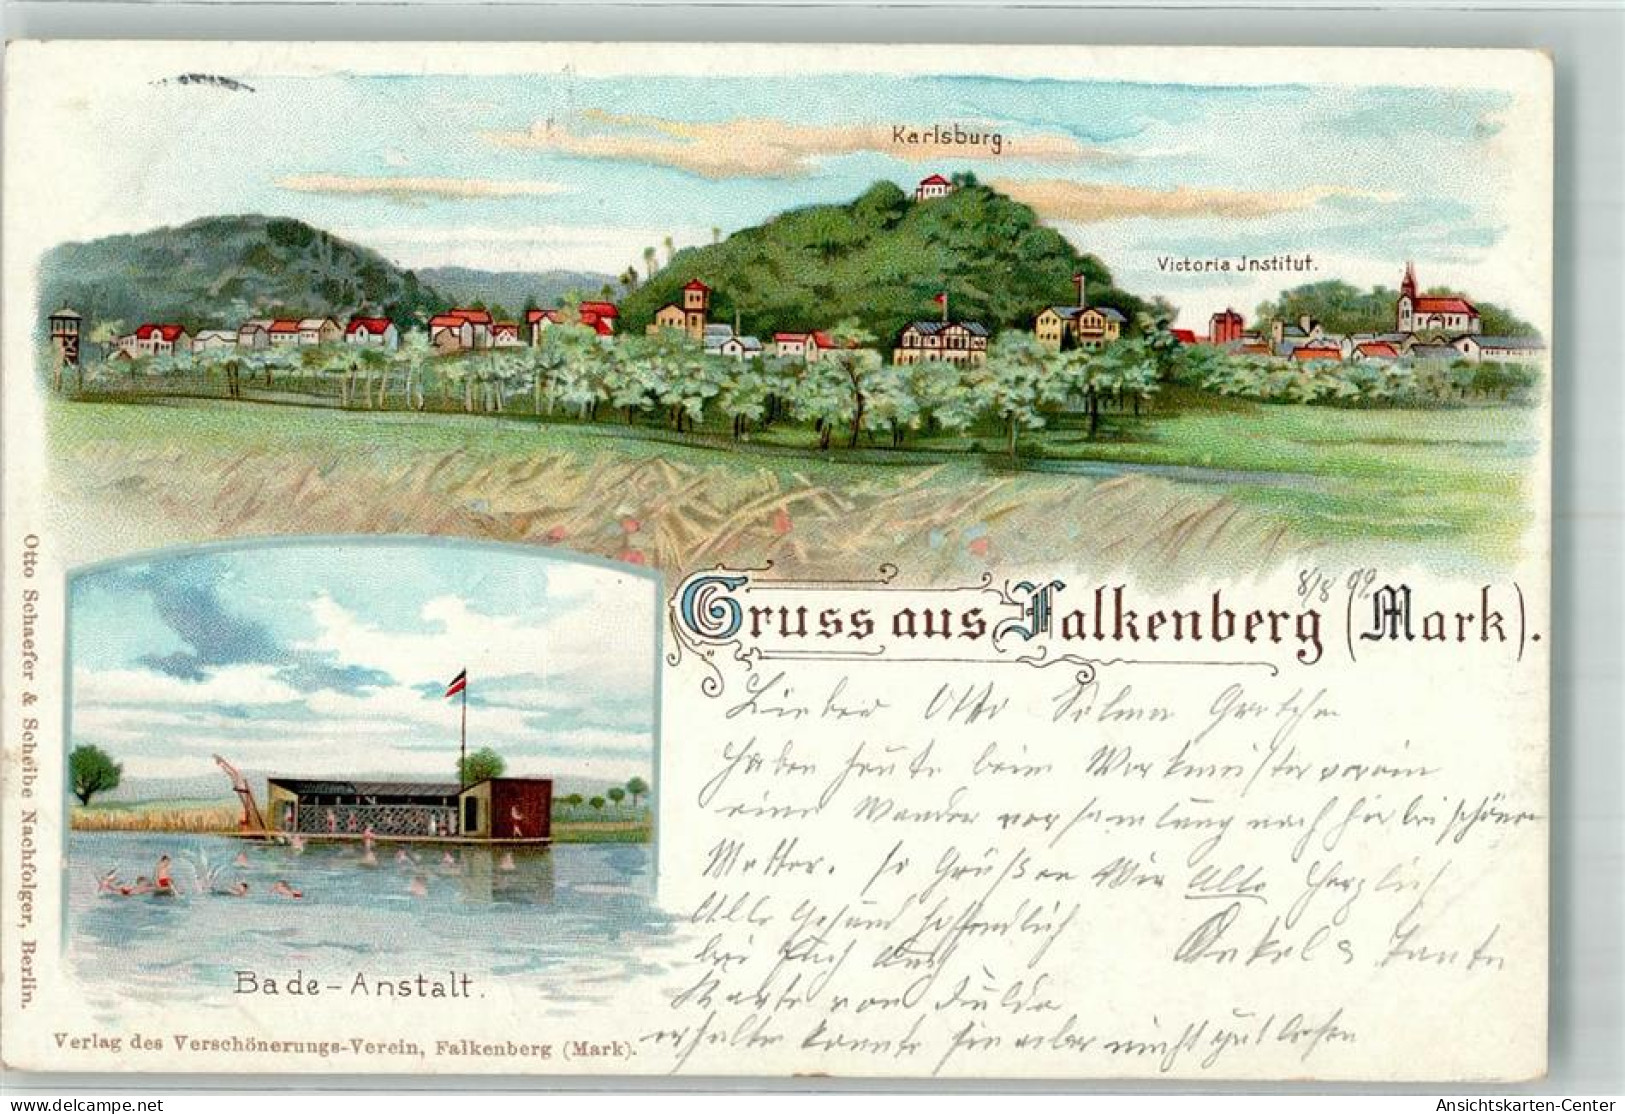 Karlsburg.
Victoria Jnstitut.
Gruss aus Falkenberg (Mark).
8/8 99.
Lieber Otto Selma Gretchen
Haben heute beim Werkmeisterverein
eine Wanderversammlung nach hier bei schönen
Wetter. so Grüßen Wir Alle Herzlich
Alle Gesund hoffendlich
bei Euch auch
Onkel & Tante
Karte von Fulda
erhalten konnte sie aber nicht gut lesen
Bade-Anstalt.
Otto Schaefer & Scheibe Nachfolger, Berlin.
Verlag des Verschönerungs-Verein, Falkenberg (Mark).
delcampe.net
Ansichtskarten-Center